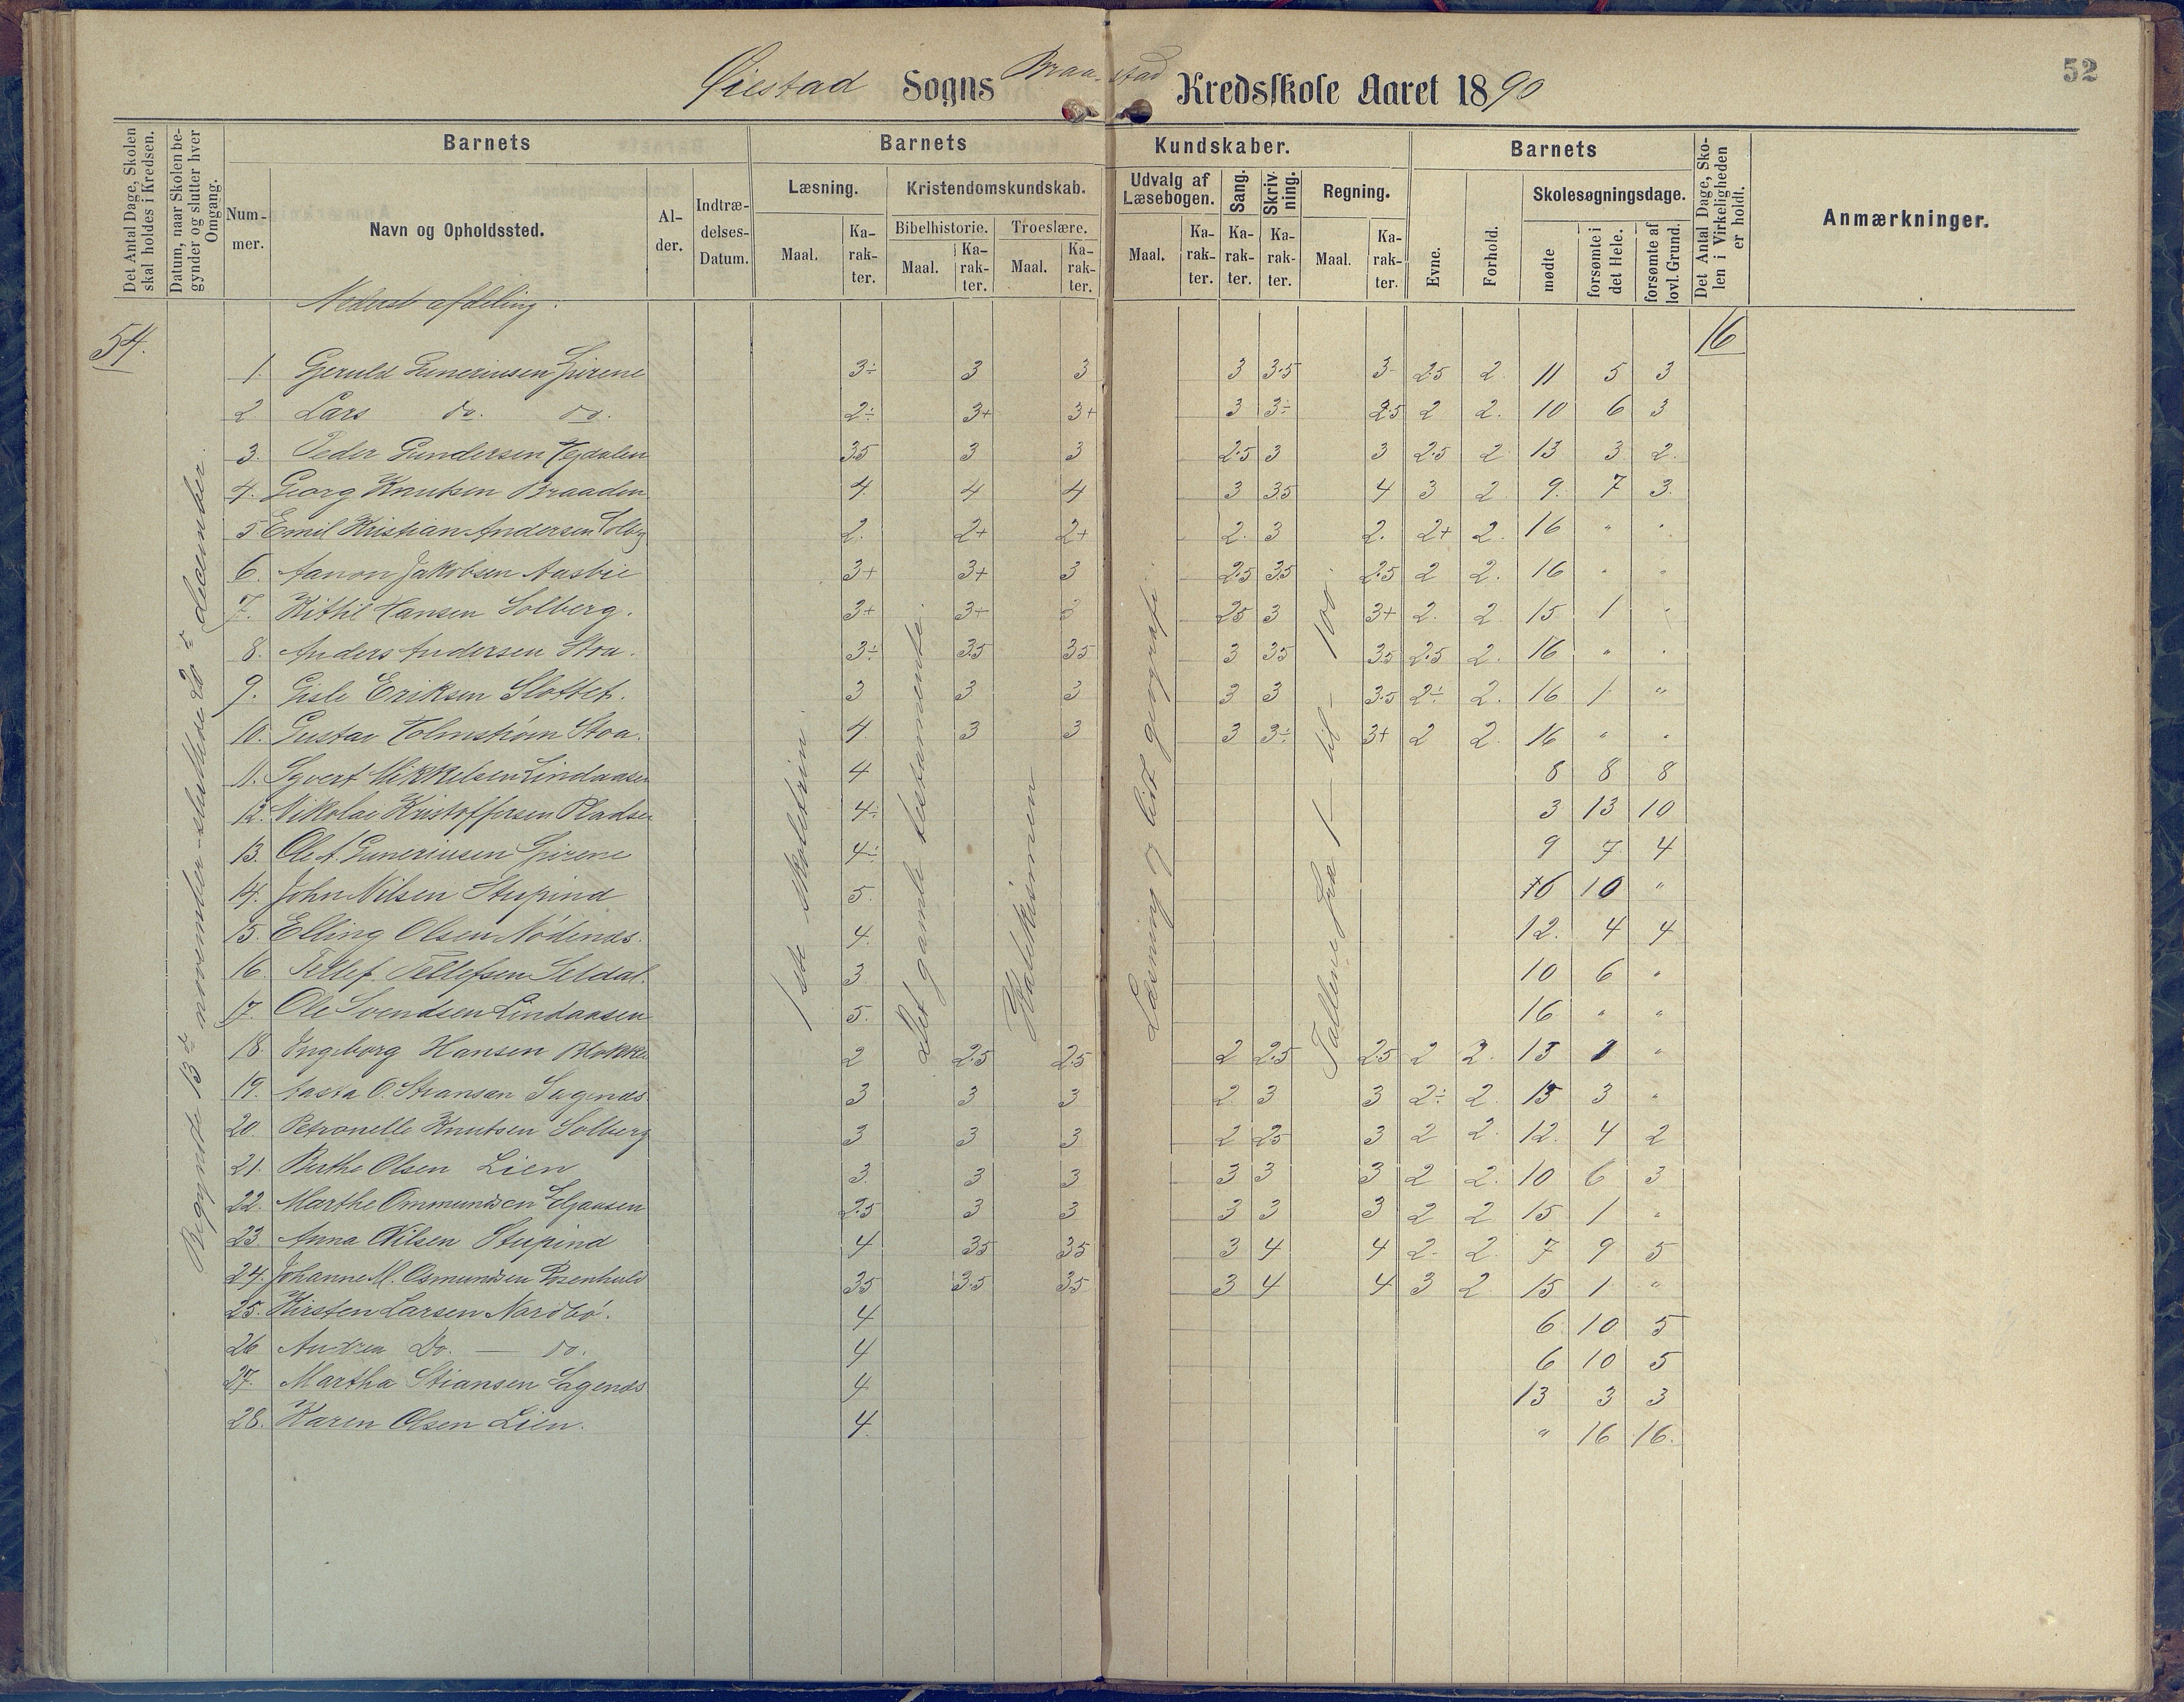 52
Øiestad Sogns Braastad Kredsskole Aaret 1890
Det Antal Dage, Skolen skal holdes i Kredsen.
Datum, naar Skolen begynder og slutter hver Omgang.
Barnets
Num-mer.
Navn og Opholdssted.
Al-der.
Indtræ-delses-Datum.
Barnets Kundskaber.
Læsning.
Maal.
Ka-rak-ter.
Kristendomskundskab.
Bibelhistorie.
Maal.
Ka-rak-ter.
Troeslære.
Maal.
Ka-rak-ter.
Udvalg af Læsebogen.
Maal.
Ka-rak-ter.
Sang.
Ka-rak-ter.
Skriv-ning.
Ka-rak-ter.
Regning.
Maal.
Ka-rak-ter.
Barnets
Evne.
Forhold.
Skolesøgningsdage.
mødte
forsømte i det Hele.
forsømte af lovl. Grund.
Det Antal Dage, Sko-len i Virkeligheden er holdt.
Anmærkninger.
Nederst afdeling.
54.
16
Begyndt 13de november - sluttedes 20de december.
1ste skoletrin.
Det gamle testamente.
Katekismen
Læsning og lidt geografi.
Tallene fra 1 – til – 100.
1. Geruld Guneriusen Spirene 3÷ 3 3 3 3.5 3- 2.5 2 11 5 3
2 Lars do. do. 2÷ 3+ 3+ 3 3÷ 2.5 2 2. 10 6 3
3. Peder Gundersen Vegdalen 3.5 3 3 2.5 3 3 2.5 2 13 3 2.
4. Georg Knutsen Braaden 4 4 4 3 3.5 4 3 2 9. 7 3.
5 Emil Kristian Andersen Solbg 2. 2+ 2+ 2. 3 2. 2+ 2. 16 " "
6. Aanon Jakobsen Aasbie 3+ 3+ 3 2.5 3.5 2.5 2 2. 16 " "
7. Kittil Hansen Solberg. 3+ 3+ 3 2.5 3 3+ 2. 2 15 1 "
8. Anders Andersen Stoa. 3÷ 3.5 3.5 3 3.5 3.5 2.5 2. 16 " "
9. Gisle Eriksen Slottet. 3 3 3 3 3 3.5 2÷ 2. 16 1 "
10. Gustav Holmstrøm Stoa. 4 3 3 3 3÷ 3+ 2 2 16 " "
11. Syvert Mikkelsen Lindaasen 4 8 8 8
12. Nikolai Kristoffersen Pladsen 4÷ 3 13 10
13. Ole A. Guneriusen Spirene 4÷ 9 7 4
14. John Nilsen Stupind 5. 6 10 "
15. Elling Olsen Nødenes. 4. 12. 4 4
16. Tellef Tellefsen Seldal. 3 10 6 "
17. Ole Svendsen Lindaasen 5. 16 " "
18. Ingeborg Hansen Blokken 2 2.5 2.5 2 2.5 2.5 2 2. 15 1 "
19. Aasta O. Stiansen Sagenes 3 3 3 2 3 3 2÷ 2. 13 3 "
20. Petronelle Knutsen Solberg 3 3 3 2 2.5 3 2 2. 12. 4 2
21. Berthe Olsen Lien 3. 3 3 3 3 3 2 2. 10 6 3
22. Marthe Ommundsen 2.5 3 3 3 3 3 2 2 15 1 "
23. Anna Nilsen Stupind 4 3.5 3.5 3 4 4 2- 2. 7 9 5
24. Johanne M. Osmundsen Rosenhuld 3.5 3.5 3.5 3 4 4 3 2 15 1 "
25. Kirsten Larsen Nordbø. 4 6 10 5
26 Andrea Do. — do. 4 6 10 5
27. Martha Stiansen Sagenes 4 13 3 3
28. Karen Olsen Lien. 4 " 16 16.